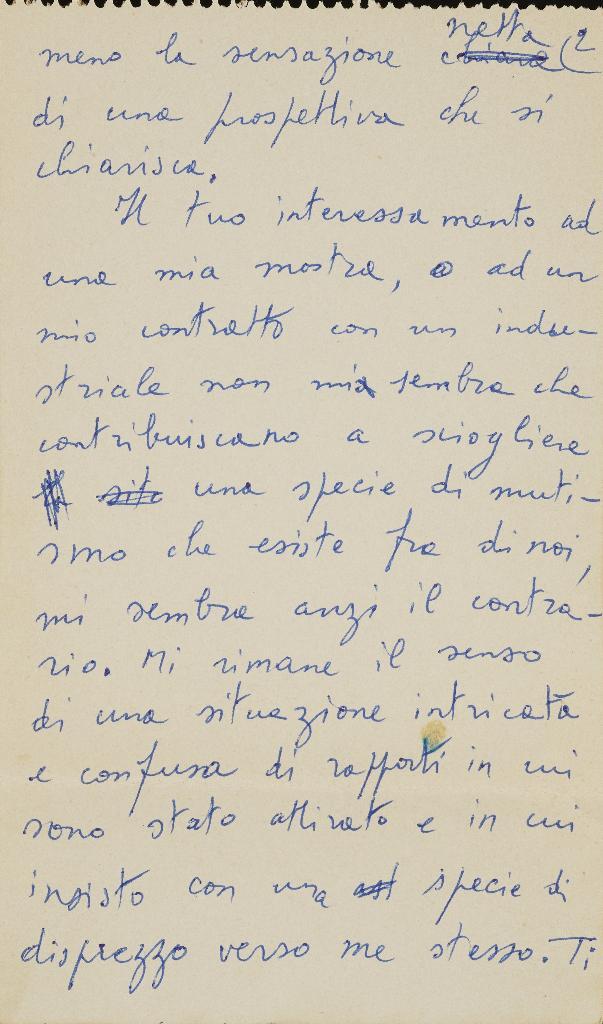 netta (2
meno la sensazione chiara
di una prospettiva che si
chiarisca.
Il tuo interessamento ad
una mia mostra, o ad un
mio contratto con un indu-
striale non mi sembra che
contribuiscano a sciogliere
una specie di muti-
smo che esiste fra di noi,
mi sembra anzi il contra-
rio. Mi rimane il senso
di una situazione intricata
e confusa di rapporti in cui
sono stato attirato e in cui
insisto con una specie di
disprezzo verso me stesso. Ti